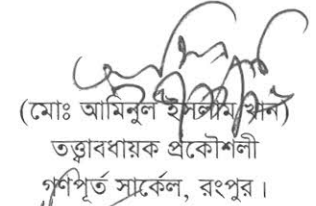 (মোঃ আমিনুল ইসলাম খান)
তত্ত্বাবধায়ক প্রকৌশলী
গণপূর্ত সার্কেল, রংপুর।